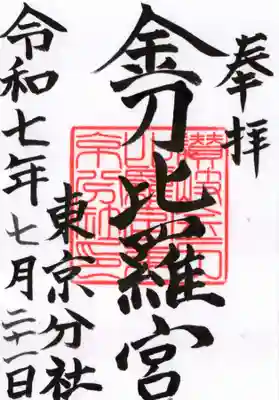 奉拝
金刀比羅宮
東京分社
令和七年七月二十一日